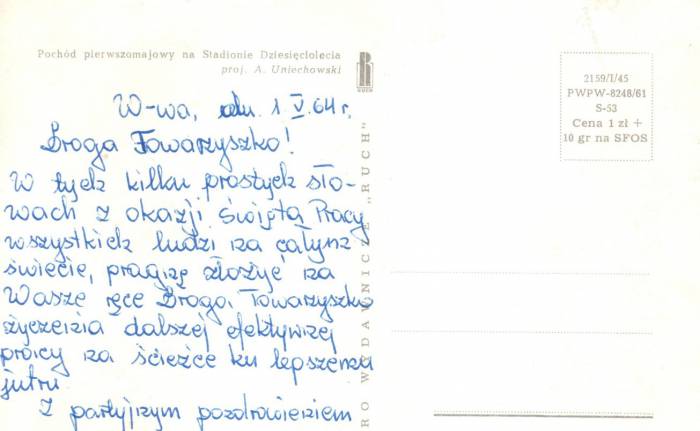 Pochód pierwszomajowy na Stadionie Dziesięciolecia
proj. A. Uniechowski
RUCH
2159/I/45
PWPW-8248/61
S-53
Cena 1 zł +
10 gr na SFOS
W-wa, dn. 1 V. 64 r.
Droga Towarzyszko!
W tych kilku prostych sło-
wach z okazji Święta Pracy
wszystkich ludzi na całym
świecie, pragnę złożyć na
Wasze ręce Droga Towarzyszko
życzenia dalszej efektywnej
pracy na ścieżce ku lepszemu
jutru.
Z partyjnym pozdrowieniem
RO WYDAWNICZE „RUCH"